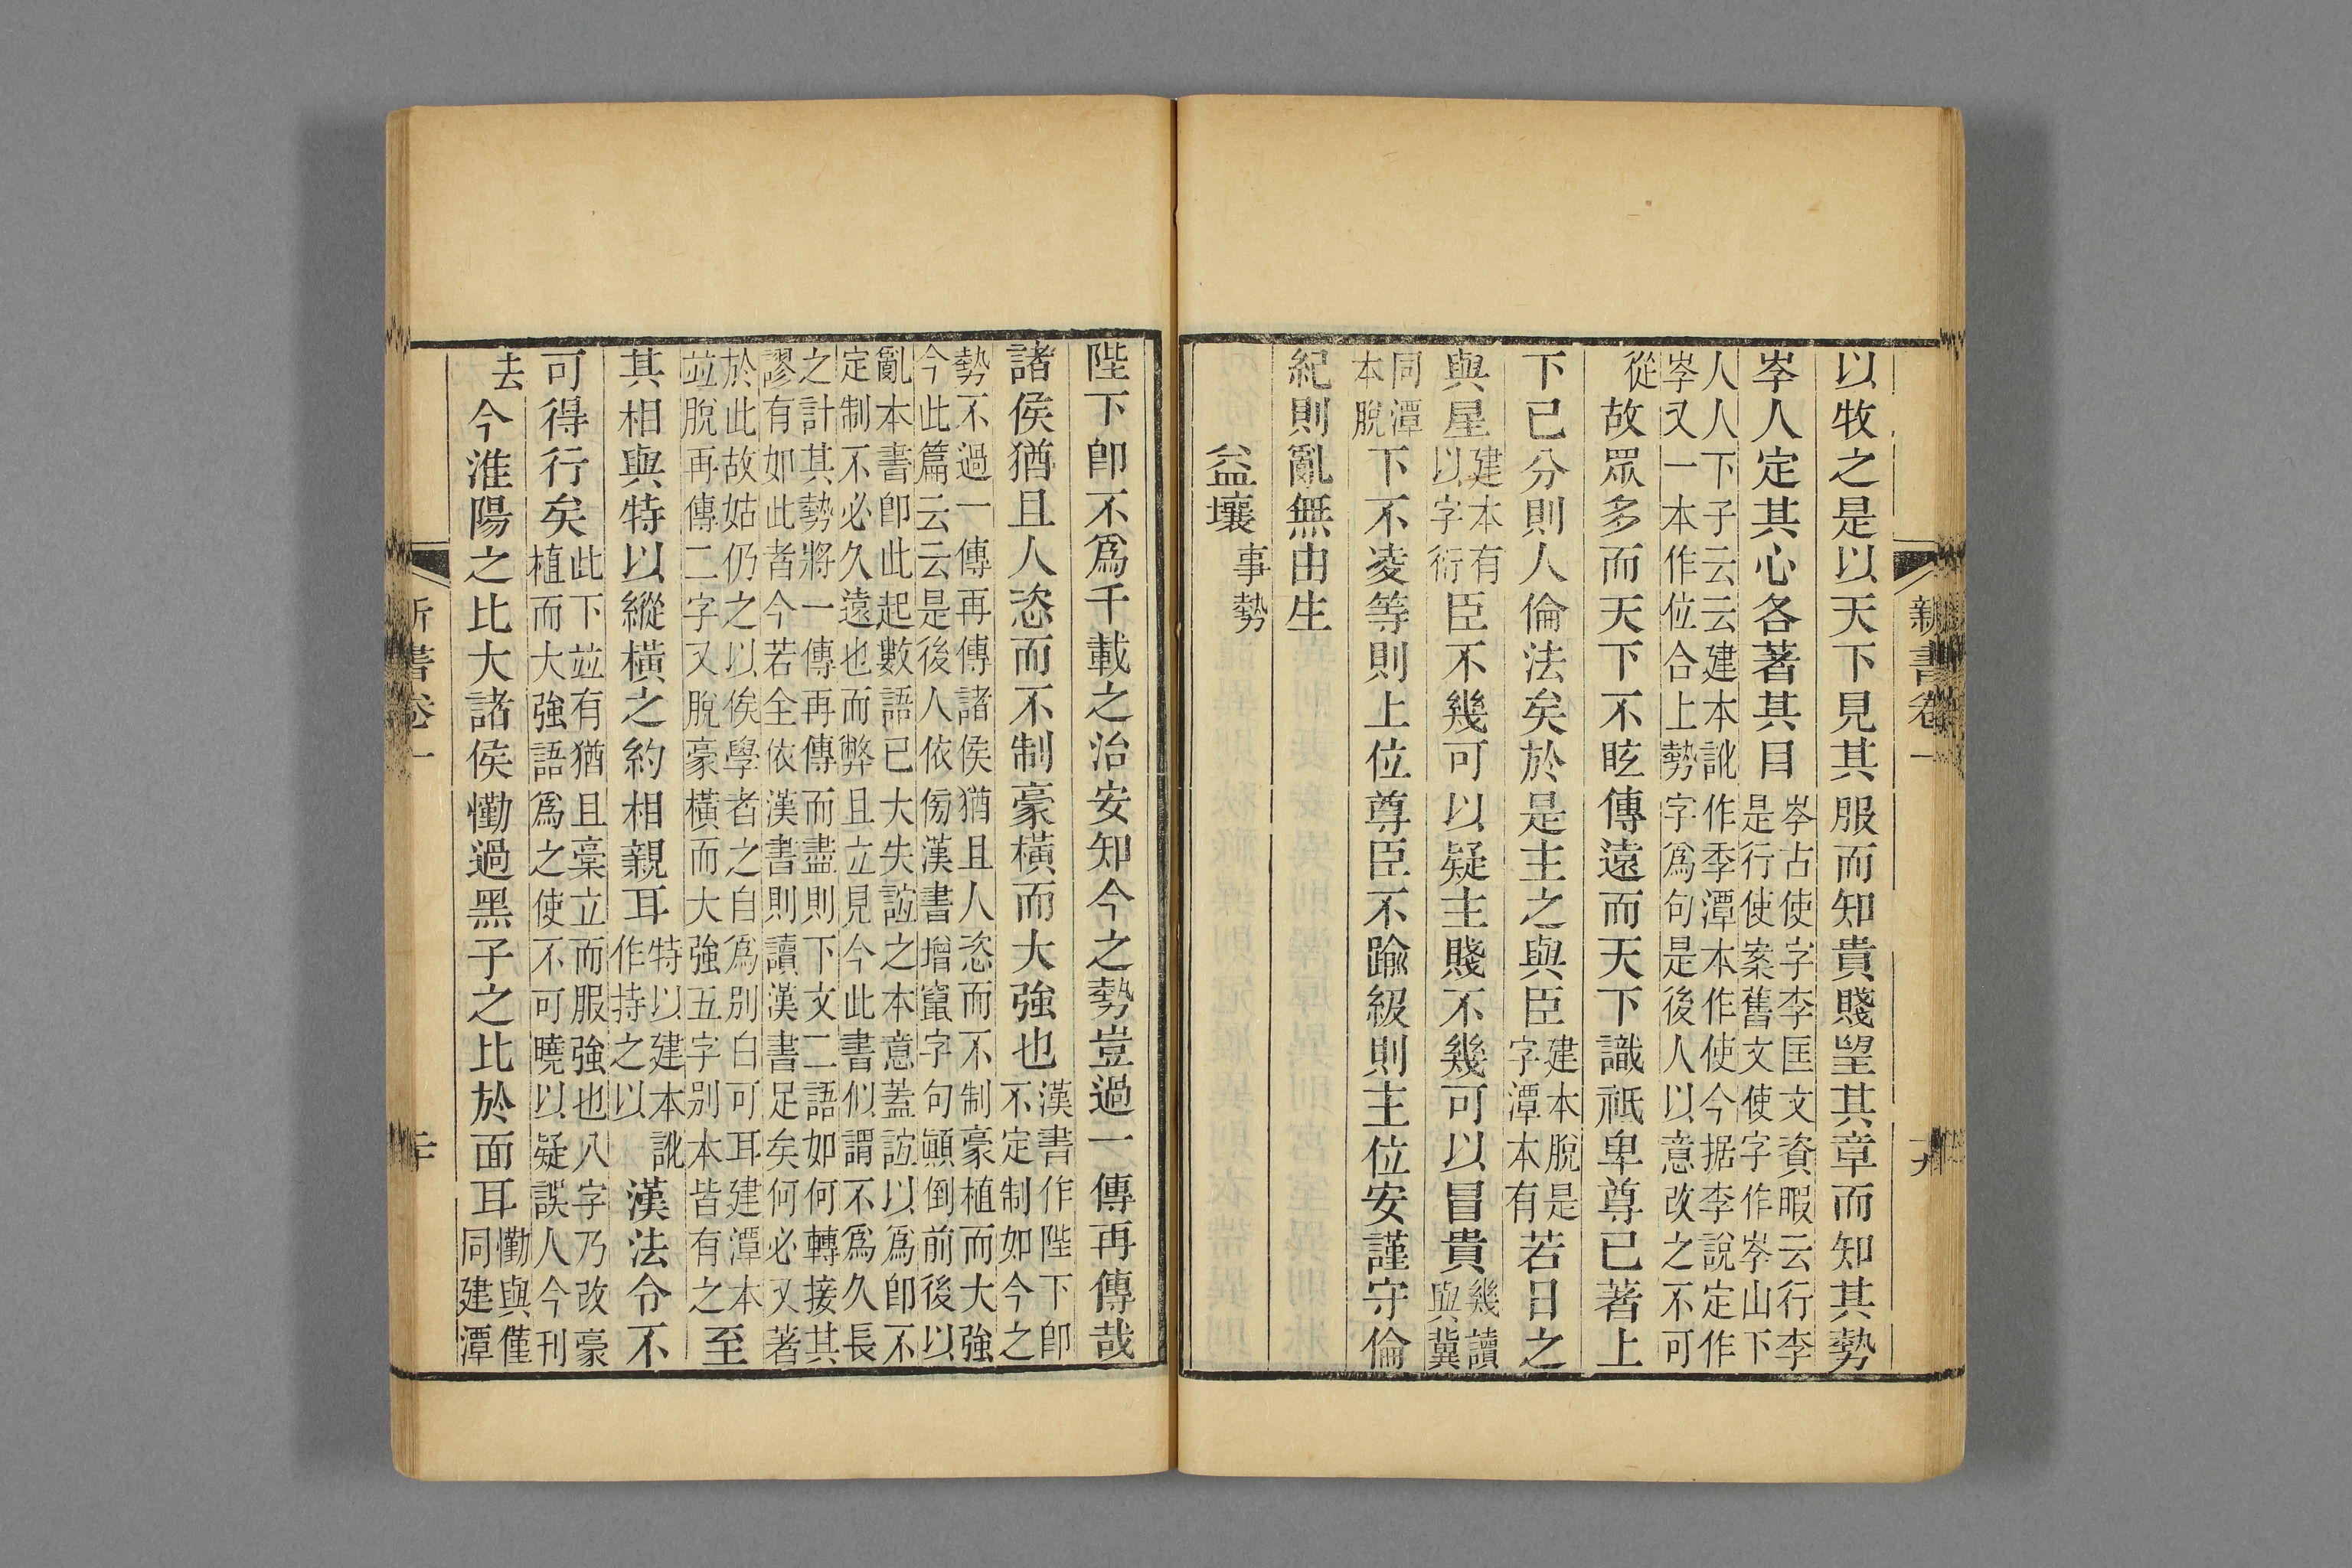 新書卷一
十九
以牧之是以天下見其服而知貴賤望其章而知其勢
岺人定其心各著其目岺古使字李匡文資暇云行李
是行使案舊文使字作岺山下
人人下子云云建本訛作季潭本作使今据李說定作
岺又一本作位合上勢字爲句是後人以意改之不可
從故眾多而天下不眩傳遠而天下識祗卑尊已著上
下已分則人倫法矣於是主之與臣建本脫是
字潭本有若日之
與星建本有
以字衍臣不幾可以疑主賤不幾可以冒貴幾讀
與冀
同潭
本脫下不凌等則上位尊臣不踰級則主位安謹守倫
紀則亂無由生
益壤事勢
陛下卽不爲千載之治安知今之勢豈過一傳再傳哉
諸侯猶且人恣而不制豪橫而大強也漢書作陛下卽
不定制如今之
勢不過一傳再傳諸侯猶且人恣而不制豪植而大強
今此篇云云是後人依傍漢書增竄字句顚倒前後以
亂本書卽此起數語已大失誼之本意蓋誼以爲卽不
定制不必久遠也而弊且立見今此書似謂不爲久長
之計其勢將一傳再傳而盡則下文二語如何轉接其
謬有如此者今若全依漢書則讀漢書足矣何必又著
於此故姑仍之以俟學者之自爲別白可耳建潭本
竝脫再傳二字又脫豪橫而大強五字别本皆有之至
其相與特以縱橫之約相親耳特以建本訛
作持之以漢法令不
可得行矣此下竝有猶且槀立而服強也八字乃改豪
植而大強語爲之使不可曉以疑誤人今刊
去今淮陽之比大諸侯懄過黑子之比於面耳懄與僅
同建潭
新書卷一
二十